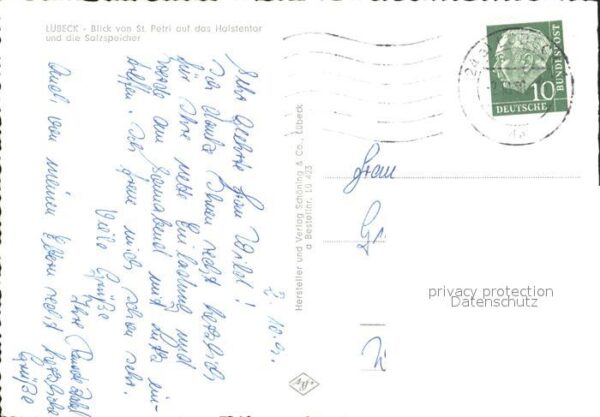 LÜBECK - Blick von St. Petri auf das Holstentor
und die Salzspeicher
2. 10.
Sehr geehrte Frau
Ich danke Ihnen recht herzlich
für Ihre nette Einladung und
werde am Sonnabend mit
treffen. Ich freue mich schon sehr.
Viele Grüße
Ihre
Auch von meinen Eltern recht herzliche
Grüße
Hersteller und Verlag Schöning & Co., Lübeck
a Bestellnr. Lü 423
10
DEUTSCHE
BUNDESPOST
Frau
Gr.
privacy protection
Datenschutz